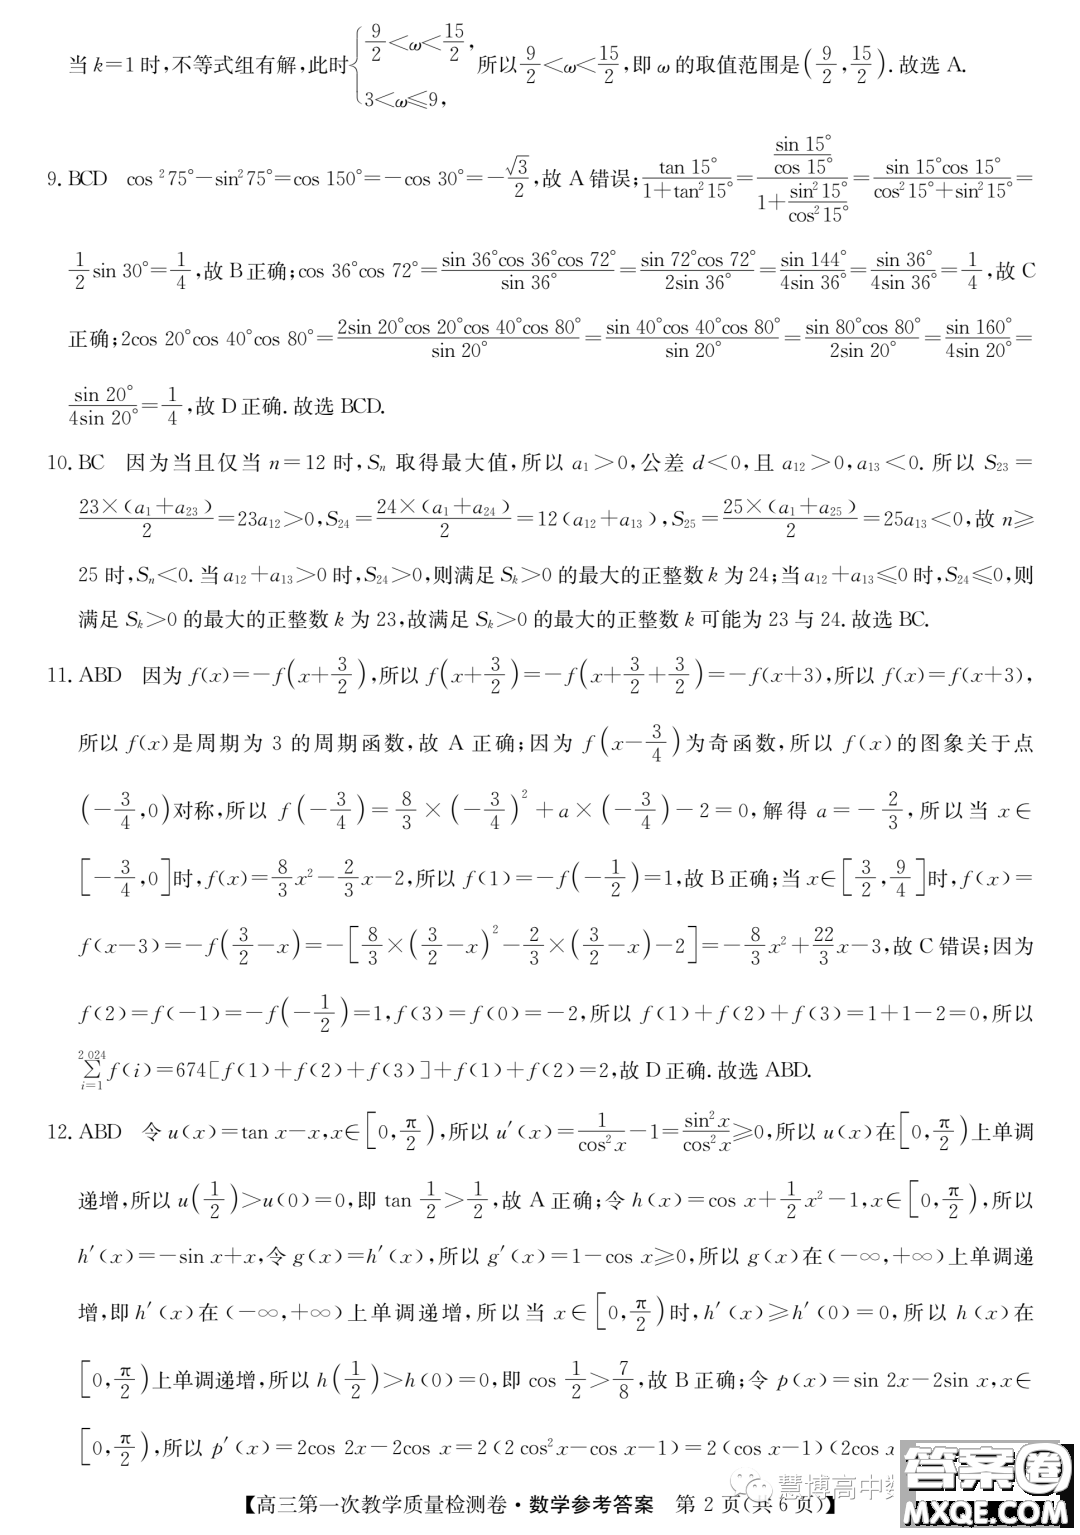 当 k=1 时,不等式组有解,此时{9/2<ω<15/2, 3<ω≤9, 所以 9/2<ω<15/2,即 ω 的取值范围是(9/2,15/2).故选 A.
9. BCD cos²75°−sin²75°=cos 150°=−cos 30°=−√3/2,故 A 错误;tan 15°/(1+tan²15°)=(sin 15°/cos 15°)/(1+sin²15°/cos²15°)=sin 15°cos 15°/(cos²15°+sin²15°)=
1/2 sin 30°=1/4,故 B 正确;cos 36°cos 72°=sin 36°cos 36°cos 72°/sin 36°=sin 72°cos 72°/2sin 36°=sin 144°/4sin 36°=sin 36°/4sin 36°=1/4,故 C
正确;2cos 20°cos 40°cos 80°=2sin 20°cos 20°cos 40°cos 80°/sin 20°=sin 40°cos 40°cos 80°/sin 20°=sin 80°cos 80°/2sin 20°=sin 160°/4sin 20°=
sin 20°/4sin 20°=1/4,故 D 正确.故选 BCD.
10. BC 因为当且仅当 n=12 时,Sₙ 取得最大值,所以 a₁>0,公差 d<0,且 a₁₂>0,a₁₃<0.所以 S₂₃=
23×(a₁+a₂₃)/2=23a₁₂>0,S₂₄=24×(a₁+a₂₄)/2=12(a₁₂+a₁₃),S₂₅=25×(a₁+a₂₅)/2=25a₁₃<0,故 n≥
25 时,Sₙ<0.当 a₁₂+a₁₃>0 时,S₂₄>0,则满足 Sₖ>0 的最大的正整数 k 为 24;当 a₁₂+a₁₃≤0 时,S₂₄≤0,则
满足 Sₖ>0 的最大的正整数 k 为 23,故满足 Sₖ>0 的最大的正整数 k 可能为 23 与 24.故选 BC.
11. ABD 因为 f(x)=−f(x+3/2),所以 f(x+3/2)=−f(x+3/2+3/2)=−f(x+3),所以 f(x)=f(x+3),
所以 f(x)是周期为 3 的周期函数,故 A 正确;因为 f(x−3/4)为奇函数,所以 f(x)的图象关于点
(−3/4,0)对称,所以 f(−3/4)=8/3×(−3/4)²+a×(−3/4)−2=0,解得 a=−2/3,所以当 x∈
[−3/4,0]时,f(x)=8/3x²−2/3x−2,所以 f(1)=−f(−1/2)=1,故 B 正确;当 x∈[3/2,9/4]时,f(x)=
f(x−3)=−f(3/2−x)=−[8/3×(3/2−x)²−2/3×(3/2−x)−2]=−8/3x²+22/3x−3,故 C 错误;因为
f(2)=f(−1)=−f(−1/2)=1,f(3)=f(0)=−2,所以 f(1)+f(2)+f(3)=1+1−2=0,所以
∑(i=1→2 024) f(i)=674[f(1)+f(2)+f(3)]+f(1)+f(2)=2,故 D 正确.故选 ABD.
12. ABD 令 u(x)=tan x−x,x∈[0,π/2),所以 u′(x)=1/cos²x−1=sin²x/cos²x≥0,所以 u(x)在[0,π/2)上单调
递增,所以 u(1/2)>u(0)=0,即 tan 1/2>1/2,故 A 正确;令 h(x)=cos x+1/2x²−1,x∈[0,π/2),所以
h′(x)=−sin x+x,令 g(x)=h′(x),所以 g′(x)=1−cos x≥0,所以 g(x)在(−∞,+∞)上单调递
增,即 h′(x)在(−∞,+∞)上单调递增,所以当 x∈[0,π/2)时,h′(x)≥h′(0)=0,所以 h(x)在
[0,π/2)上单调递增,所以 h(1/2)>h(0)=0,即 cos 1/2>7/8,故 B 正确;令 p(x)=sin 2x−2sin x,x∈
[0,π/2),所以 p′(x)=2cos 2x−2cos x=2(2 cos²x−cos x−1)=2(cos x−1)(2cos x
【高三第一次教学质量检测卷·数学参考答案 第 2 页(共 6 页)】
慧博高中数
答案圈
MXQE.COM